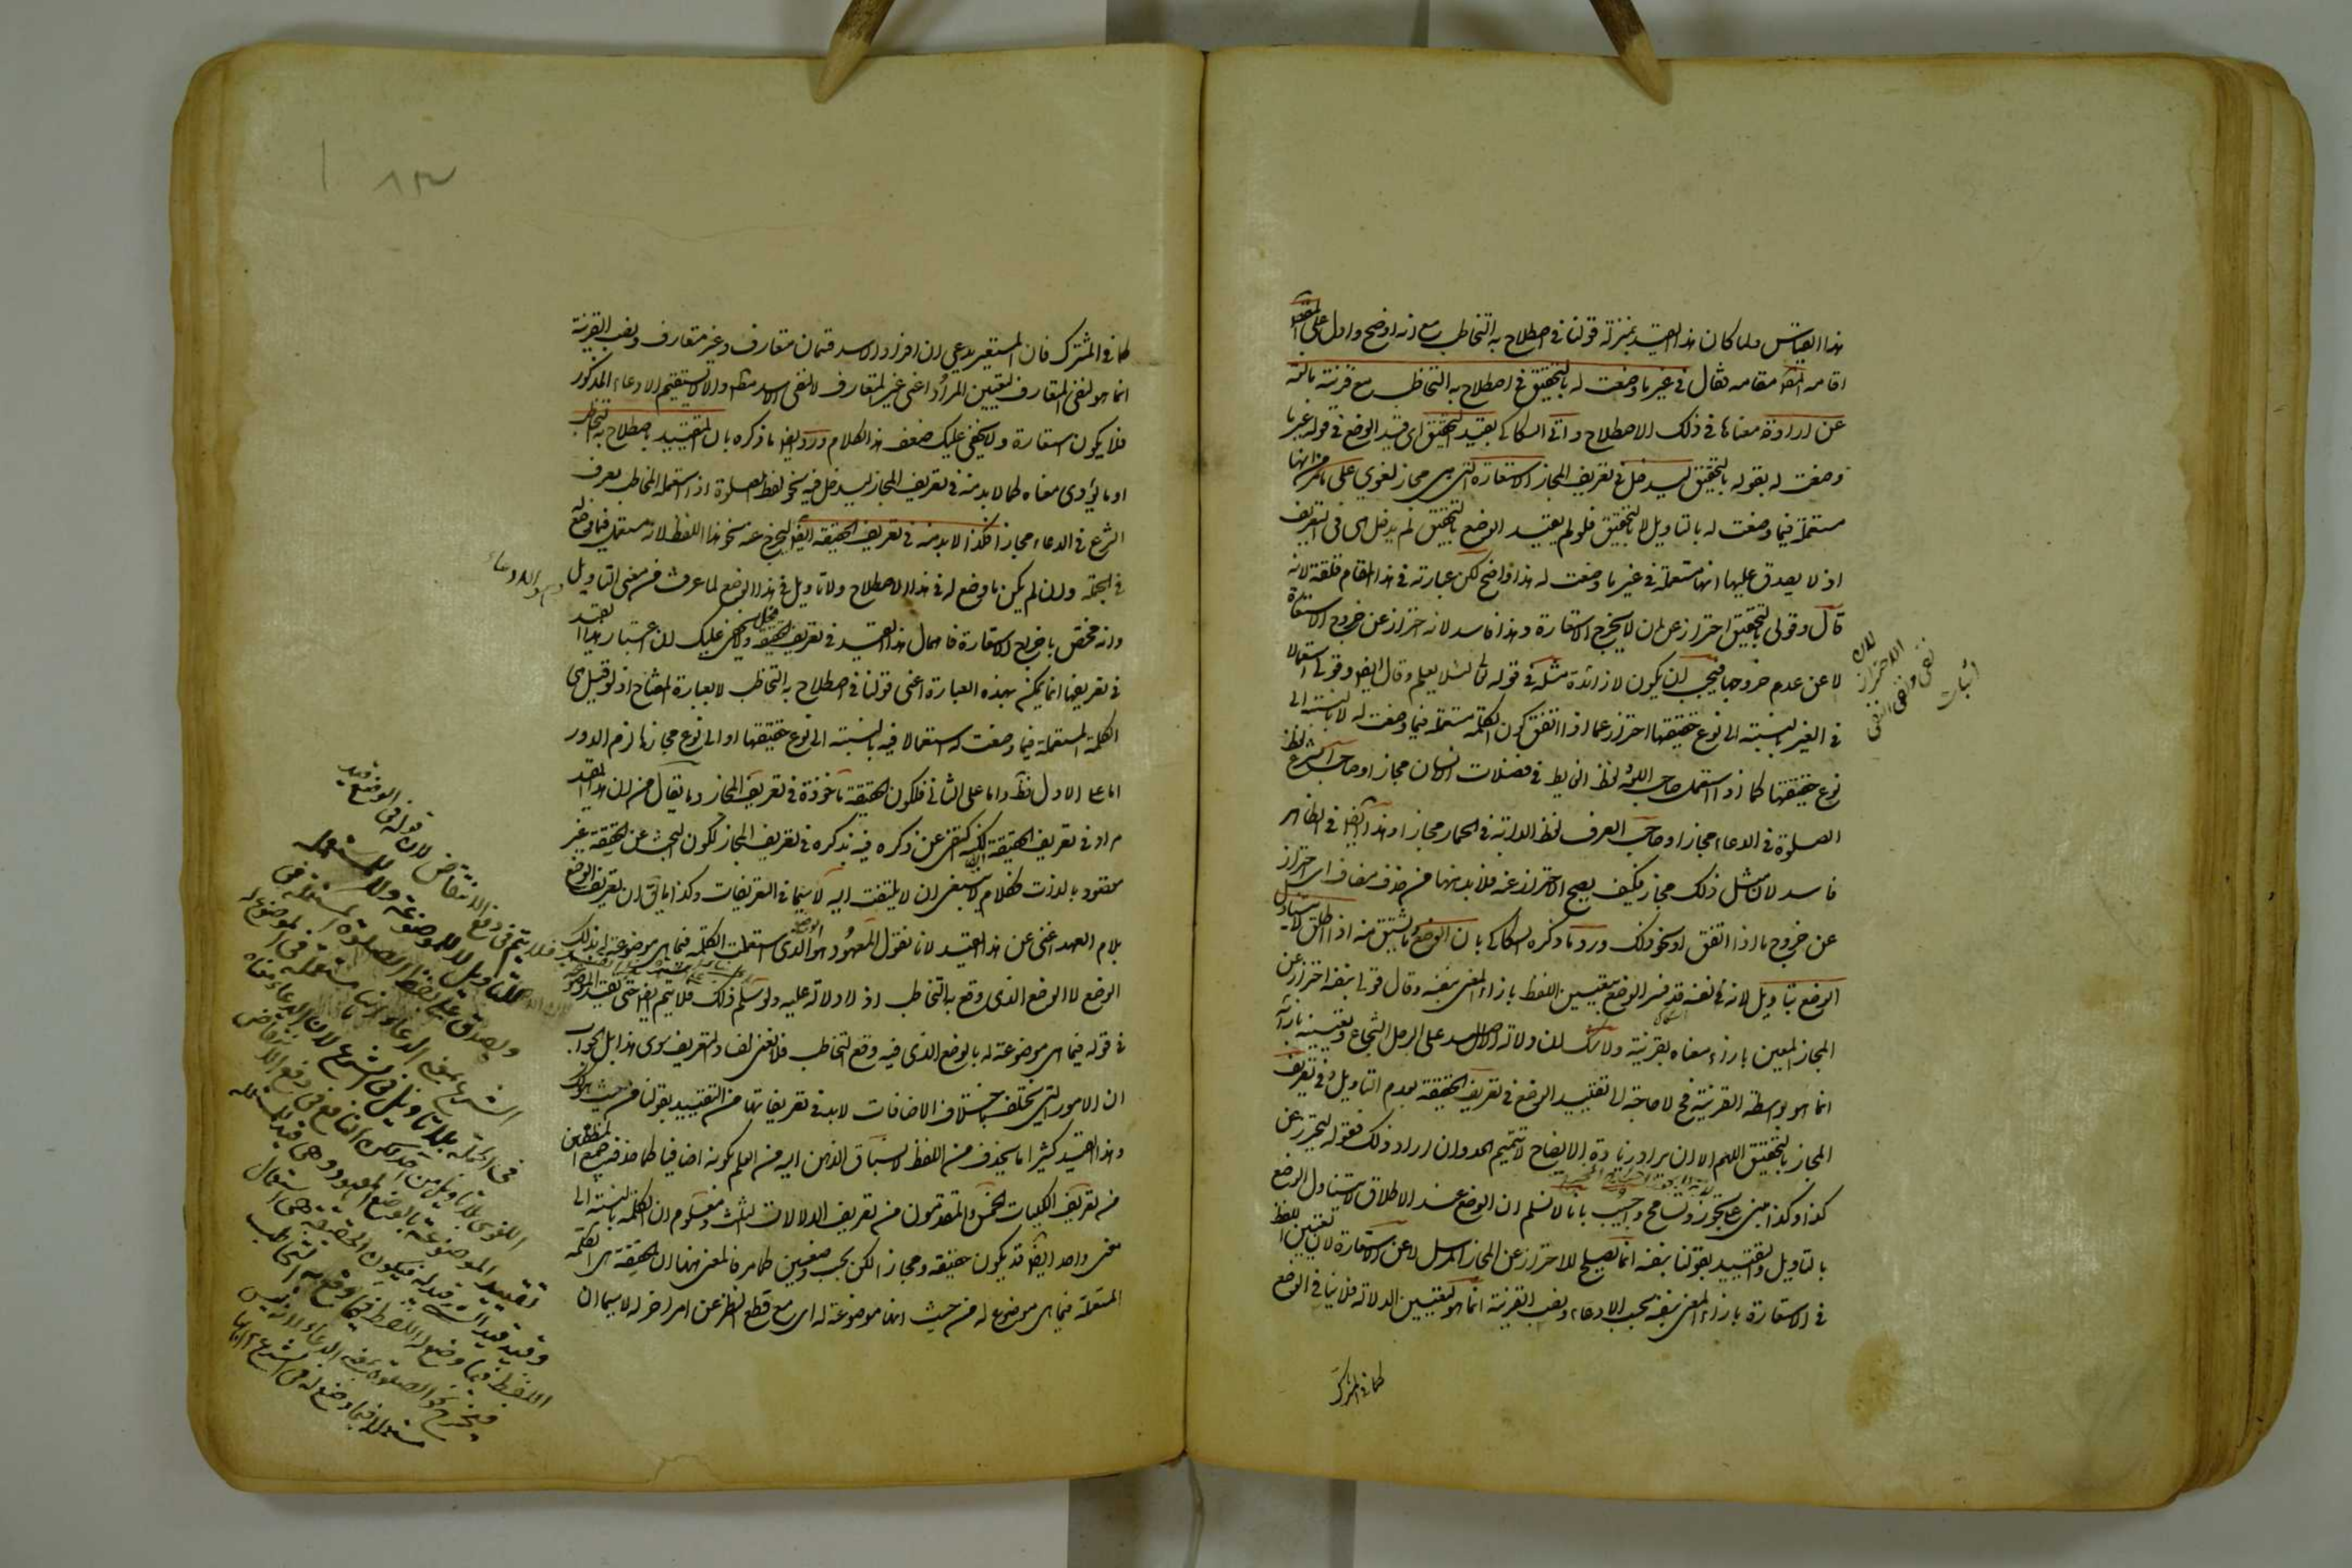 هذا القياس ولما كان هذا القيد بمنزلة قولنا في اصطلاح به التخاطب مع انه اوضح وادل على المقصود
اقامه المص مقامه فقال في غير ما وضعت له بالتحقيق في اصطلاح به التخاطب مع قرينة مانعة
عن ارادة معناها في ذلك الاصطلاح واتى السكاكي بقيد التحقيق اى قيد الوضع في قوله غير ما
وضعت له بقوله بالتحقيق ليدخل في تعريف المجاز الاستعارة التى هى مجاز لغوي على ما مر من انها
مستعملة فيما وضعت له بالتاويل لا بالتحقيق فلو لم يقيد الوضع بالتحقيق لم يدخل هى في التعريف
اذ لا يصدق عليها انها مستعملة في غير ما وضعت له هذا واضح لكن عبارته في هذا المقام قلقة لانه
قال وقولى بالتحقيق احتراز عن ان لا يخرج الاستعارة وهذا فاسد لانه احتراز عن خروج الاستعارة
لا عن عدم خروجها فيجب ان يكون لا زائدة مثله في قوله تعالى لئلا يعلم وقال ايضا وقولى استعمالا
في الغير بالنسبة الى نوع حقيقتها احتراز عما اذا اتفق كون الكلمة مستعملة فيما وضعت له لا بالنسبة الى
نوع حقيقتها كما اذا استعمل صاحب اللغة لفظ الغايط في فضلات الانسان مجازا او صاحب الشرع لفظ
الصلوة في الدعاء مجازا او صاحب العرف لفظ الدابة في الحمار مجازا وهذا ايضا في الظاهر
فاسد لان مثل ذلك مجاز فكيف يصح الاحتراز عنه فلا بد ههنا من حذف مضاف اى احتراز
عن خروج ما اذا اتفق او نحو ذلك ورد ما ذكره السكاكي بان الوضع وما يشتق منه اذا اطلق لا يتناول
الوضع بتاويل لانه في نفسه قد فسر الوضع بتعيين اللفظ بازاء المعنى بنفسه وقال قولى بنفسه احتراز عن
المجاز المعين بازاء معناه بقرينة ولا شك ان دلالة الاسد على الرجل الشجاع وتعيينه بازائه
انما هو بواسطة القرينة فح لا حاجة الى تقييد الوضع في تعريف الحقيقة بعدم التاويل وفي تعريف
المجاز بالتحقيق اللهم الا ان يراد زيادة الايضاح لا تتميم الحد وان اراد ذلك فقوله ليتحرز عن
كذا وكذا مبنى على تجوز وتسامح واجيب بانا لا نسلم ان الوضع عند الاطلاق لا يتناول الوضع
بالتاويل والتقييد بقولنا بنفسه انما يصلح للاحتراز عن المجاز المرسل لا عن الاستعارة لان تعيين اللفظ
في الاستعارة بازاء المعنى بنفسه بحسب الادعاء ونصب القرينة انما هو لتعيين الدلالة فلا ينافي الوضع
كما في المشترك
لان
الاحتراز
نفى ونفى النفى
اثبات
كما في المشترك فان المستعير يدعى ان افراد الاسد قسمان متعارف وغير متعارف ونصب القرينة
انما هو لنفى المتعارف ليتعين المراد اعنى غير المتعارف لا لنفى الاسد مطلقا والا لا يستقيم الادعاء المذكور
فلا يكون استعارة ولا يخفى عليك ضعف هذا الكلام ورد ايضا ما ذكره بان التقييد باصطلاح به التخاطب
او ما يؤدى معناه كما لا بد منه في تعريف المجاز ليدخل فيه نحو لفظ الصلوة اذا استعمله المخاطب بعرف
الشرع في الدعاء مجازا فكذا لا بد منه في تعريف الحقيقة ايضا ليخرج عنه نحو هذا اللفظ لانه مستعمل فيما وضع له
في الجملة وان لم يكن ما وضع له في هذا الاصطلاح ولا تاويل في هذا الوضع لما عرفت من معنى التاويل
وانه مختص باخراج الاستعارة فاهمال هذا القيد في تعريف الحقيقة مخل ولا يخفى عليك ان اعتبار هذا القيد
في تعريفها انما يمكن بهذه العبارة اعنى قولنا في اصطلاح به التخاطب لا بعبارة المفتاح اذ لو قيل هى
الكلمة المستعملة فيما وضعت له استعمالا فيه بالنسبة الى نوع حقيقتها او الى نوع مجازها لزم الدور
اما على الاول فظ واما على الثاني فلكون الحقيقة ماخوذة في تعريف المجاز وما يقال من ان هذا القيد
مراد في تعريف الحقيقة لكنه اكتفى عن ذكره فيه بذكره في تعريف المجاز لكون البحث عن الحقيقة غير
مقصود بالذات فكلام لا ينبغى ان لا يلتفت اليه لا سيما في التعريفات وكذا ما يق ان تعريف الوضع
بلام العهد اغنى عن هذا القيد لانا نقول المعهود هو الوضع الذى استعملت الكلمة فيما هى موضوعة له بذلك
الوضع لا الوضع الذى وقع به التخاطب اذ لا دلالة عليه ولو سلم ذلك فلا يتم ايضا حتى يقيد الموضوعة
في قوله فيما هى موضوعة له بالوضع الذى فيه وقع التخاطب فلا معنى لفساد التعريف سوى هذا بل الجواب
ان الامور التى تختلف باختلاف الاضافات لا بد في تعريفاتها من التقييد بقولنا من حيث هو كذلك
وهذا القيد كثيرا ما يحذف من اللفظ لانسياق الذهن اليه من العلم بكونه اضافيا كما حذف جميع المنطقيين
من تعريف الكليات الخمس والمتقدمون من تعريف الدلالات الثلث ومعلوم ان الكلمة بالنسبة الى
معنى واحد ايضا قد يكون حقيقة ومجازا لكن بحسب وضعين كما مر فالمعنى ههنا ان الحقيقة هى الكلمة
المستعملة فيما هى موضوعة له من حيث انها موضوعة له اى مع قطع النظر عن امر اخر له لا سيما ان
وهو الدعاء
٨٣
فلا يتم في دفع الانتقاض لان قوله في الوضع قيد
للتاويل لا للموضوعة ولا للمستعملة
ويصدق على لفظ الصلوة المستعملة في
الشرع بمعنى الدعاء انها مستعملة في الموضوع له
في الجملة بلا تاويل في الشرع لان الدعاء معناه
اللغوى بلا تاويل
تقييد الموضوعة بالوضع المعهود
اللفظ فيما وضع له اللفظ فيما وقع به التخاطب
فيخرج نحو الصلوة بمعنى الدعاء
مستعملا فيما وضع له في الشرع